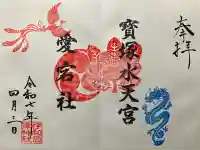 奉拝
寶塚水天宮
愛宕社
令和七年
四月三日